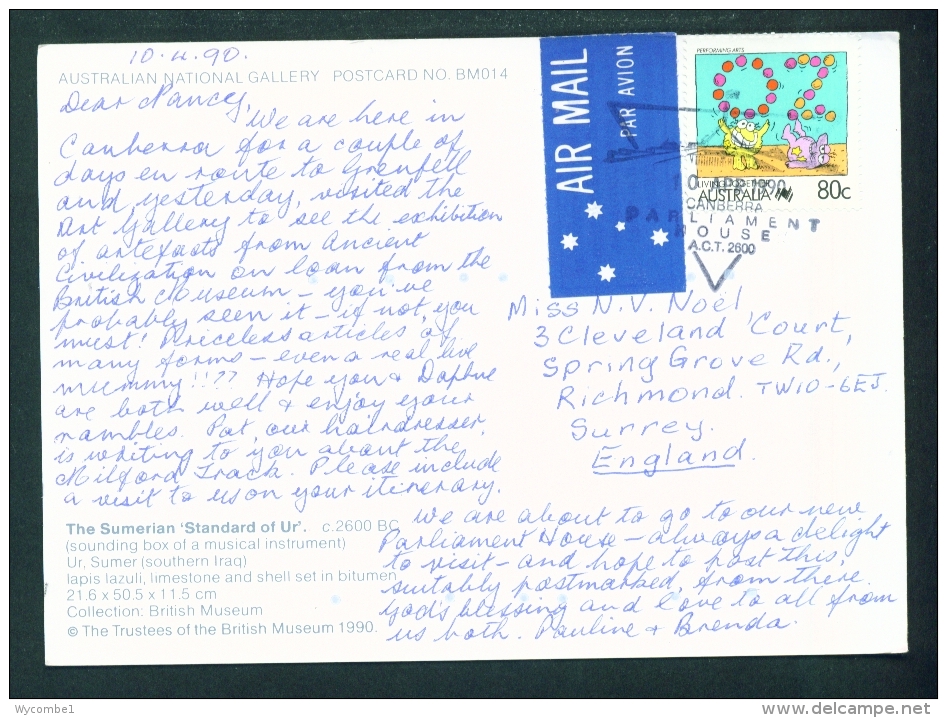 10.4.90.
AUSTRALIAN NATIONAL GALLERY POSTCARD NO. BM014
Dear Nancy,
We are here in
Canberra for a couple of
days en route to Grenfell
and yesterday, visited the
Art Gallery to see the exhibition
of artefacts from Ancient
Civilization on loan from the
British Museum – you've
probably seen it – if not, you
must! Priceless articles of
many forms – even a real live
mummy!!?? Hope you & Daphne
are both well & enjoy your
rambles. Pat, our hairdresser,
is writing to you about the
Milford Track. Please include
a visit to us on your itinerary.
We are about to go to our new
Parliament House – always a delight
to visit – and hope to post this,
suitably postmarked, from there.
God's blessing and love to all from
us both. Pauline & Brenda.
The Sumerian 'Standard of Ur'. c.2600 BC
(sounding box of a musical instrument)
Ur, Sumer (southern Iraq)
lapis lazuli, limestone and shell set in bitumen
21.6 x 50.5 x 11.5 cm
Collection: British Museum
© The Trustees of the British Museum 1990.
AIR MAIL
PAR AVION
PERFORMING ARTS
LIVING TOGETHER
AUSTRALIA 80c
10 APR 1990
CANBERRA
PARLIAMENT
HOUSE
A.C.T. 2600
Miss N.V. Noël
3 Cleveland Court,
Spring Grove Rd.,
Richmond. TW10-6EJ.
Surrey.
England.
Wycombe1
www.delcampe.net